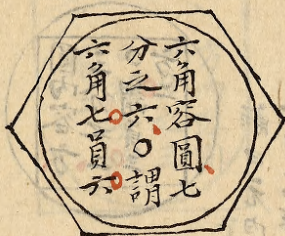 六角容圓七
分之六〇謂
六角七員六